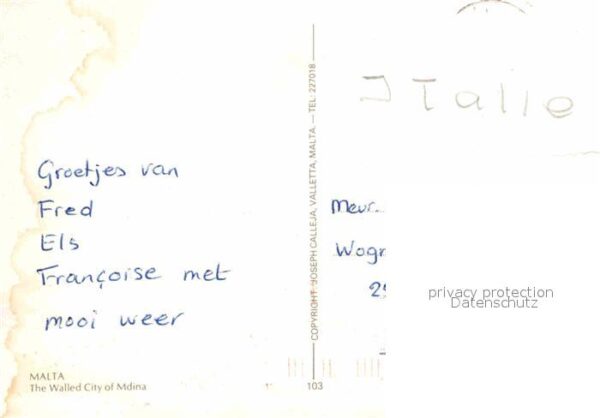 Groetjes van
Fred
Els
Françoise met
mooi weer
MALTA
The Walled City of Mdina
COPYRIGHT: JOSEPH CALLEJA, VALLETTA, MALTA. — TEL: 227018
103
Italie
Mevr.
privacy protection
Datenschutz